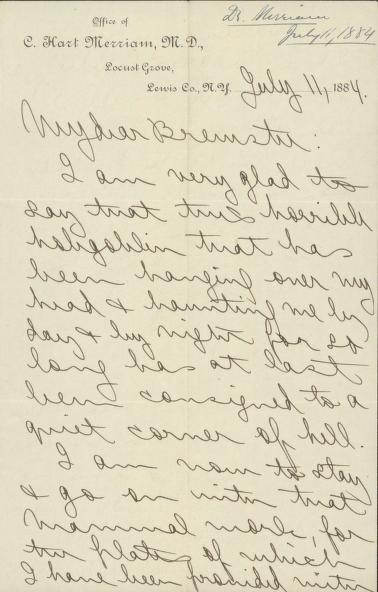 Dr. Merriam
July 11, 1884
Office of
C. Hart Merriam, M.D.,
Locust Grove,
Lewis Co., N.Y. July 11, 1884.
My dear Brewster:
I am very glad to
say that this horrible
hobgoblin that has
been hanging over my
head & haunting me by
day & by night for so
long has at last
been consigned to a
quiet corner of hell.
I am now to stay
& go on with that
Mammal work, for
the plates of which
I have been provided with